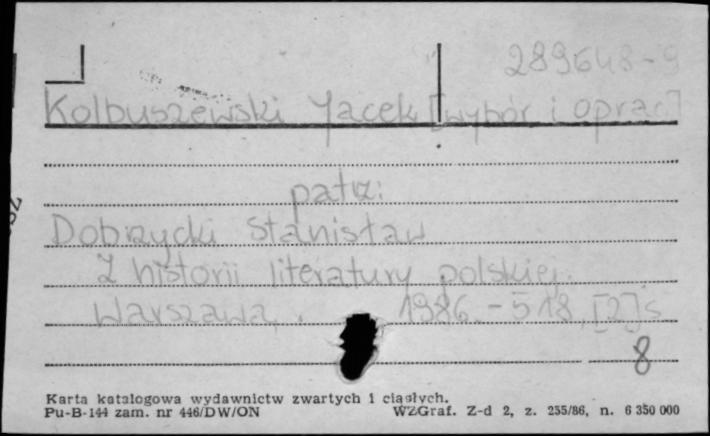 289648-9
Kolbuszewski Jacek [wybór i oprac]
patrz:
Dobrzycki Stanisław
Z historii literatury polskiej.
Warszawa, 1986. - 518, [2] s
8
Karta katalogowa wydawnictw zwartych i ciągłych.
Pu-B-144 zam. nr 446/DW/ON WZGraf. Z-d 2, z. 255/86, n. 6 350 000